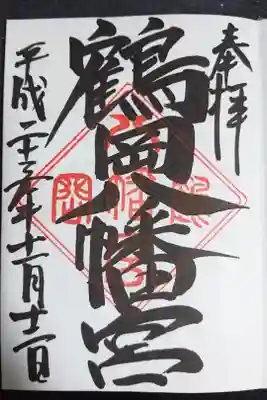 奉拝
鶴岡八幡宮
平成二十三年十一月十二日